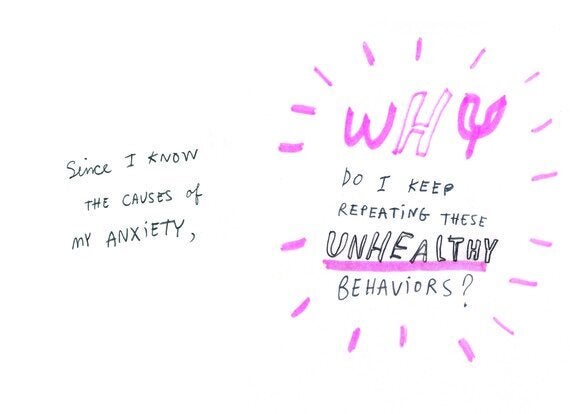 Since I KNOW
THE CAUSES of
MY ANXiETY,
WHY
DO I KEEP
REPEATING THESE
UNHEALTHY
BEHAViORS?